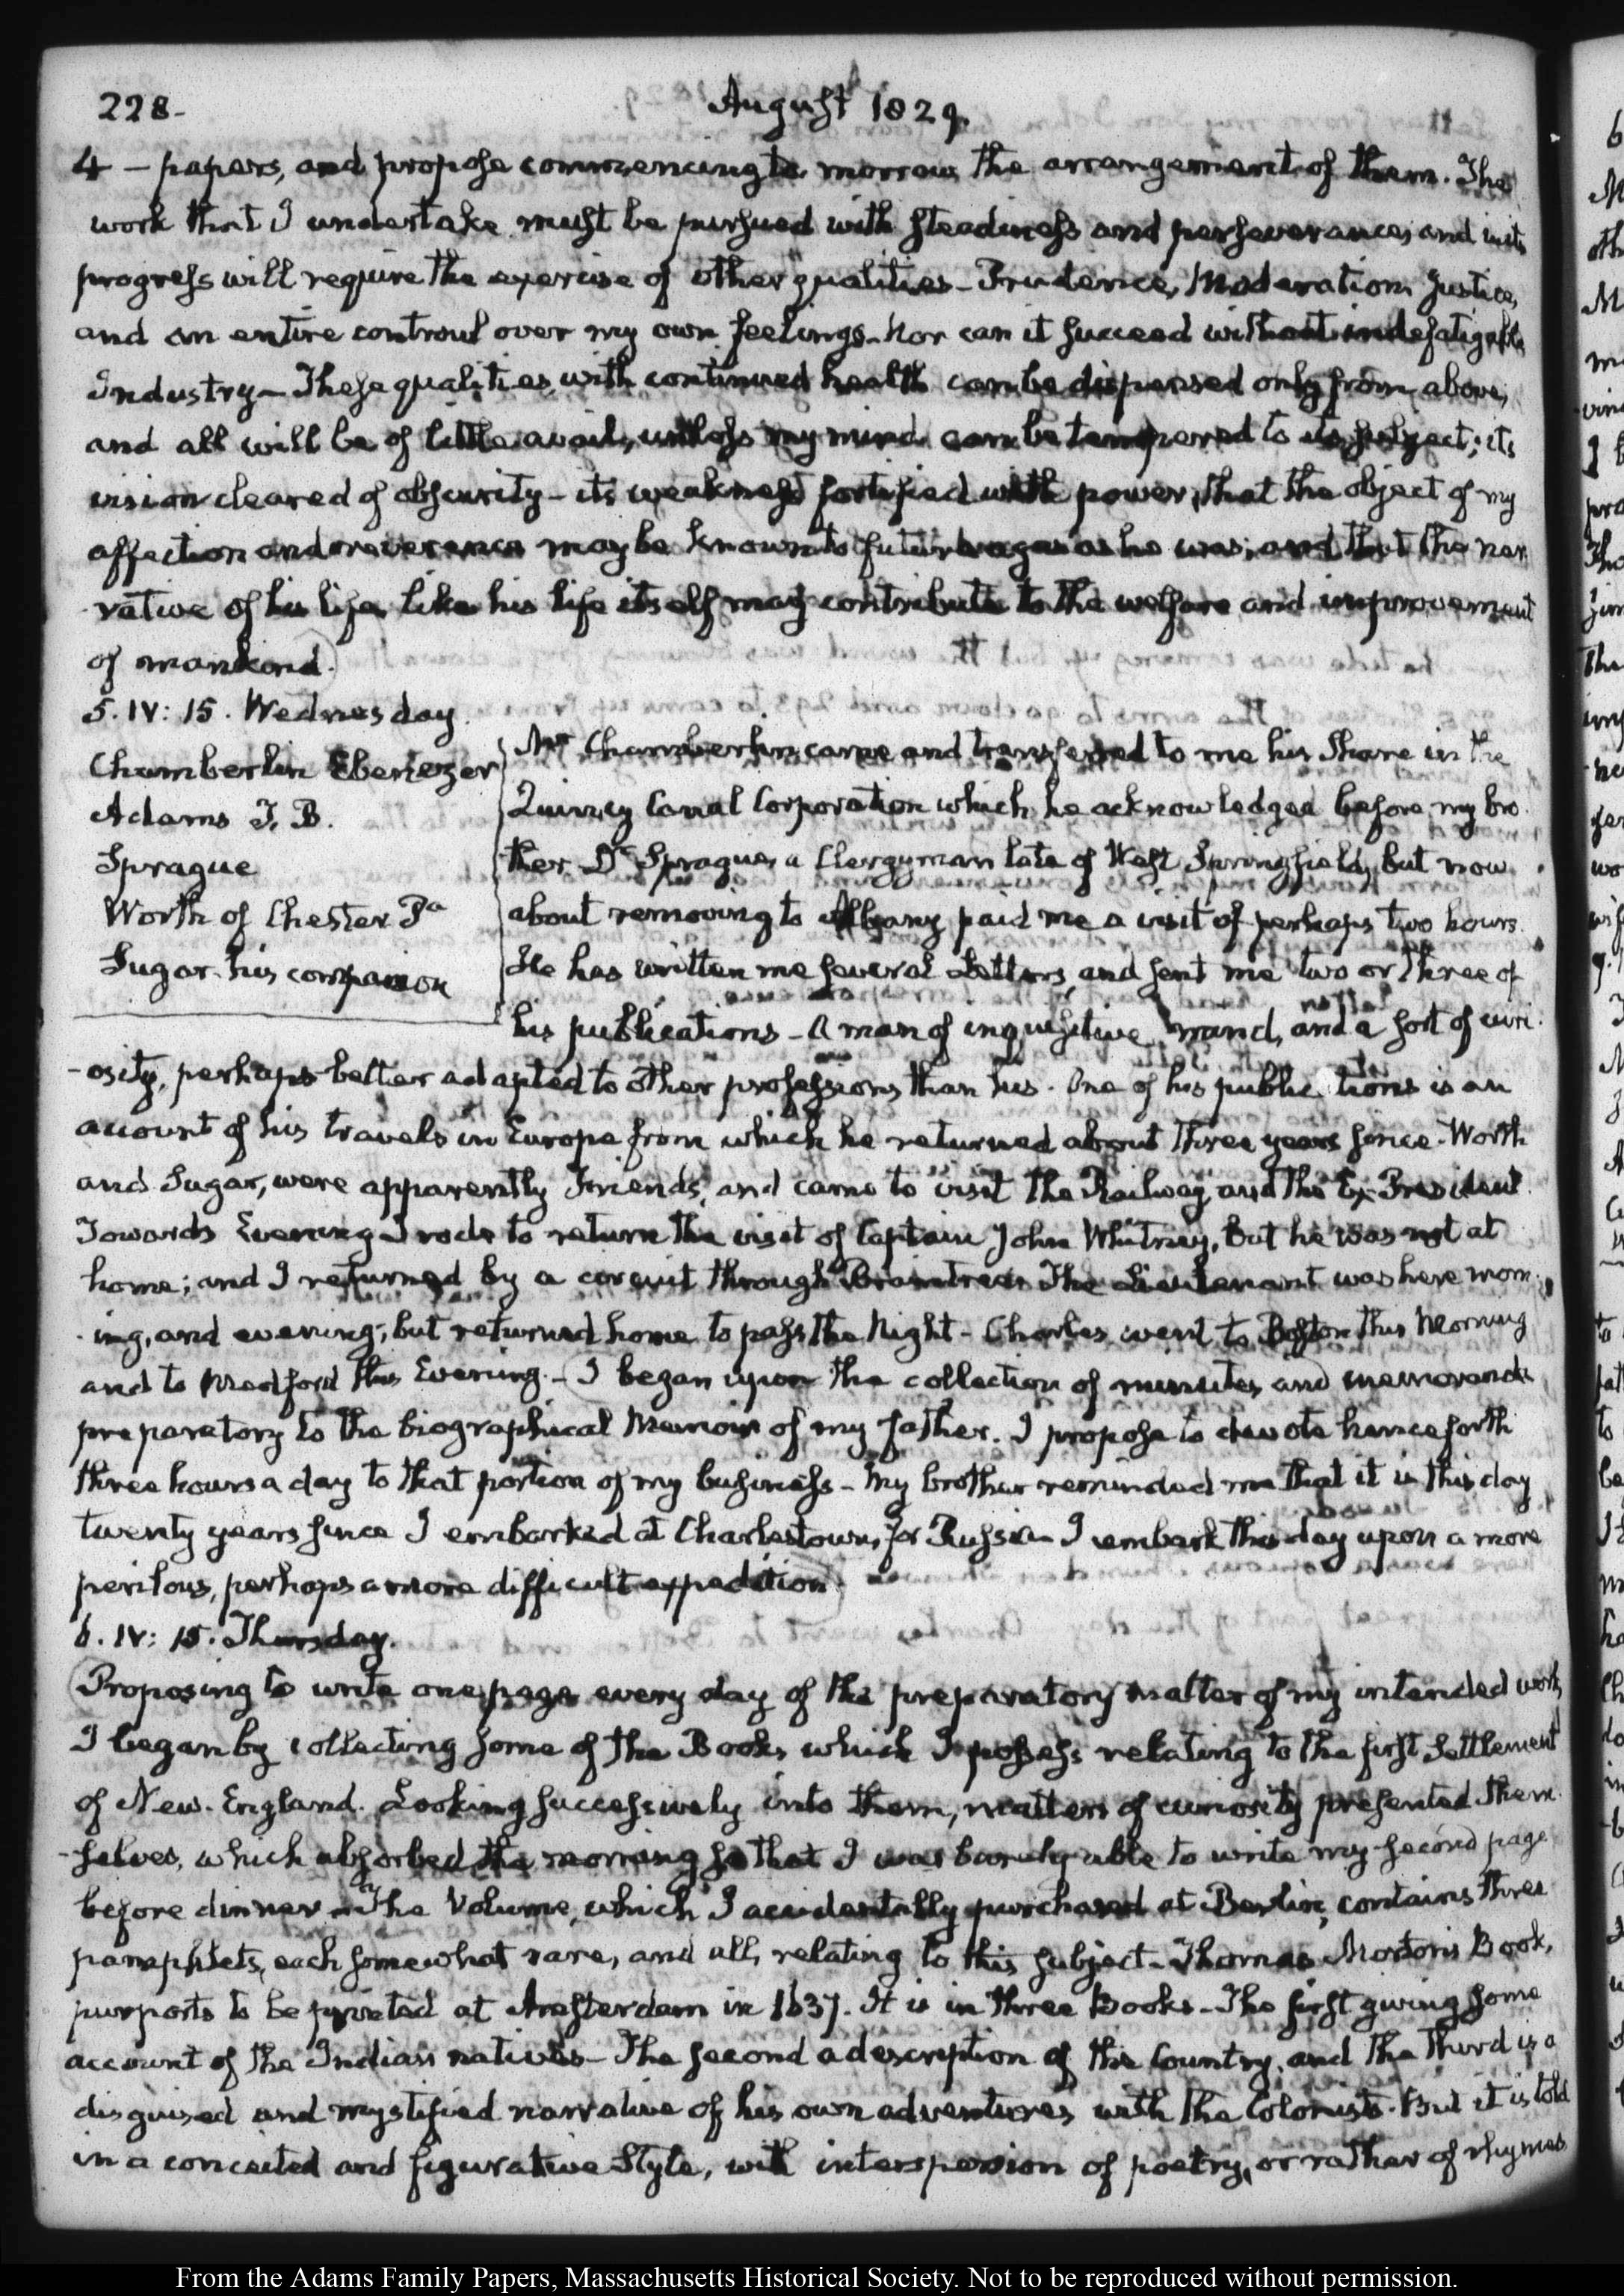 228-
August 1829.
4 – papers, and propose commencing to morrow the arrangement of them. The
work that I undertake must be pursued with steadiness and perseverance, and in its
progress will require the exercise of other qualities – Prudence, Moderation, Justice,
and an entire controul over my own feelings. Nor can it succeed without indefatigable
Industry – These qualities, with continued health can be dispensed only from above,
and all will be of little avail, unless my mind can be tempered to its subject; its
vision cleared of obscurity – its weakness fortified with power, that the object of my
affection and reverence may be known to future ages as he was; and that the nar
rative of his life, like his life itself may contribute to the welfare and improvement
of mankind.
5. IV: 15. Wednesday.
Chamberlin Ebenezer
Adams T. B.
Sprague
Worth of Chester Pa
Sugar his companion
Mr Chamberlin came and transferred to me his Share in the
Quincy Canal Corporation which he acknowledged before my bro
ther. Dr Sprague, a Clergyman late of West Springfield, but now
about removing to Albany paid me a visit of perhaps two hours.
He has written me several Letters, and sent me two or three of
his publications – A man of inquisitive mind, and a sort of curi
-osity, perhaps better adapted to other professions than his. One of his publications is an
account of his travels in Europe from which he returned about three years since. Worth
and Sugar, were apparently Friends, and came to visit the Railway and the Ex-President.
Towards Evening I rode to return the visit of Captain John Whitney, but he was not at
home; and I returned by a circuit through Braintree. The Lieutenant was here morn
-ing, and evening; but returned home to pass the Night – Charles went to Boston this Morning
and to Medford this Evening. – I began upon the collection of minutes and memoranda
preparatory to the biographical Memoir of my father. I propose to devote henceforth
three hours a day to that portion of my business – My brother reminded me that it is this day
twenty years since I embarked at Charlestown, for Russia – I embark this day upon a more
perilous, perhaps a more difficult expedition
6. IV: 15. Thursday.
Proposing to write one page every day of the preparatory matter of my intended work,
I began by collecting some of the Books which I possess relating to the first Settlement
of New-England. Looking successively into them, matters of curiosity presented them
-selves, which absorbed the morning so that I was barely able to write my second page
before dinner – The Volume, which I accidentally purchased at Berlin, contains three
pamphlets, each somewhat rare, and all, relating to this subject – Thomas Morton's Book,
purports to be printed at Amsterdam in 1637. It is in three Books – The first giving some
account of the Indian natives – The second a description of the Country, and the Third is a
disguised and mystified narrative of his own adventures with the Colonists. But it is told
in a conceited and figurative Style, with interspersion of poetry, or rather of rhymes
From the Adams Family Papers, Massachusetts Historical Society. Not to be reproduced without permission.